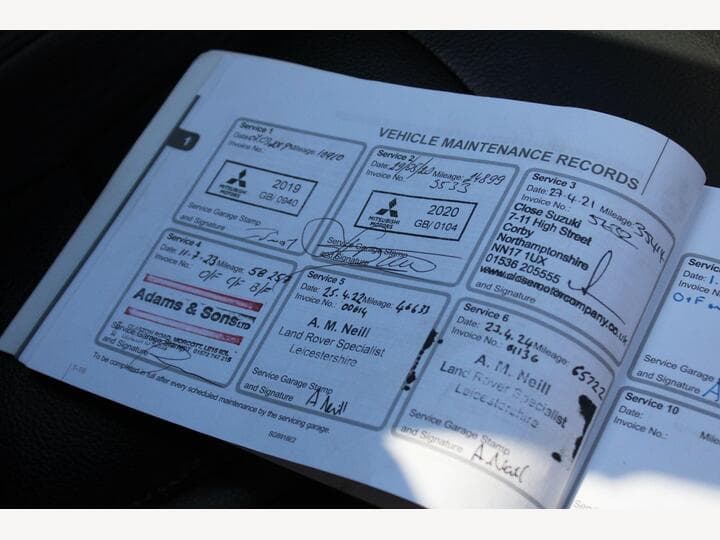 VEHICLE MAINTENANCE RECORDS
1
Service 1
Date: Mileage: 10910
Invoice No.:
MITSUBISHI
MOTORS
2019
GB/0940
Service Garage Stamp
and Signature
Service 2
Date: 29/08/20 Mileage: 24899
Invoice No.: 5533
MITSUBISHI
MOTORS
2020
GB/0104
Service Garage Stamp
and Signature
Service 3
Date: 23.4.21 Mileage:
Invoice No.:
Close Suzuki
7-11 High Street
Corby
Northamptonshire
NN17 1UX
01536 205555
www.closemotorcompany.co.uk
and Signature
Service 4
Date: Mileage:
Invoice No.: O/F O/F
Adams & Sons LTD
Service Garage Stamp
and Signature
Service 5
Date: 25.4.22 Mileage: 46633
Invoice No.: 00614
A. M. Neill
Land Rover Specialist
Leicestershire
Service Garage Stamp
and Signature A Neill
Service 6
Date: 23.4.24 Mileage: 65722
Invoice No.: 01136
A. M. Neill
Land Rover Specialist
Leicestershire
Service Garage Stamp
and Signature A. Neill
To be completed in full after every scheduled maintenance by the servicing garage.
1-10
Date: 1.
Invoice N
Service Garage
and Signature
Service 10
Date: Mile
Invoice No.: